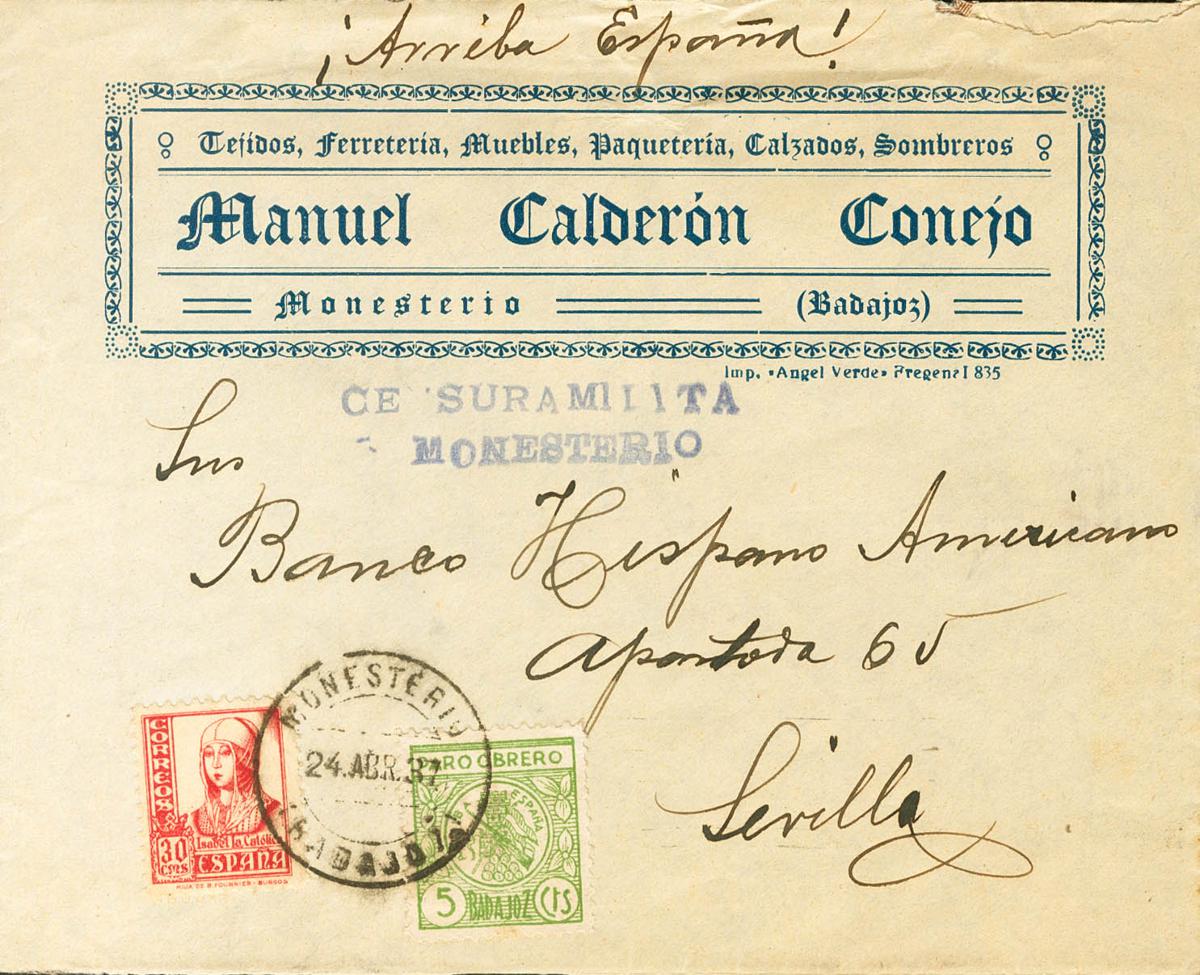 ¡Arriba España!
Tejidos, Ferretería, Muebles, Paquetería, Calzados, Sombreros
Manuel Calderón Conejo
Monesterio (Badajoz)
Imp. «Angel Verde» Fregenal 835
CE SURA MILITA
MONESTERIO
Banco Hispano Americano
Apartado 65
Sevilla
MONESTERIO
24.ABR.37
BADAJOZ
CORREOS
30
CTMS
Isabel la Católica
ESPAÑA
HIJA DE B. FOURNIER - BURGOS
PRO OBRERO
ESPAÑA
5 BADAJOZ CTS